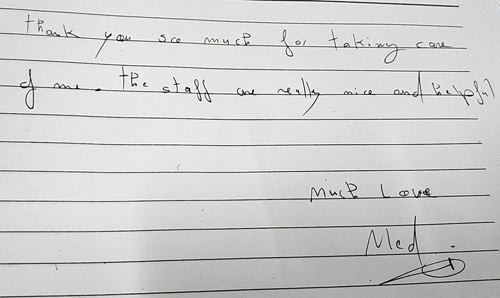 thank you soo much for taking care
of me. the staff are really nice and helpful
Much Love
Med.